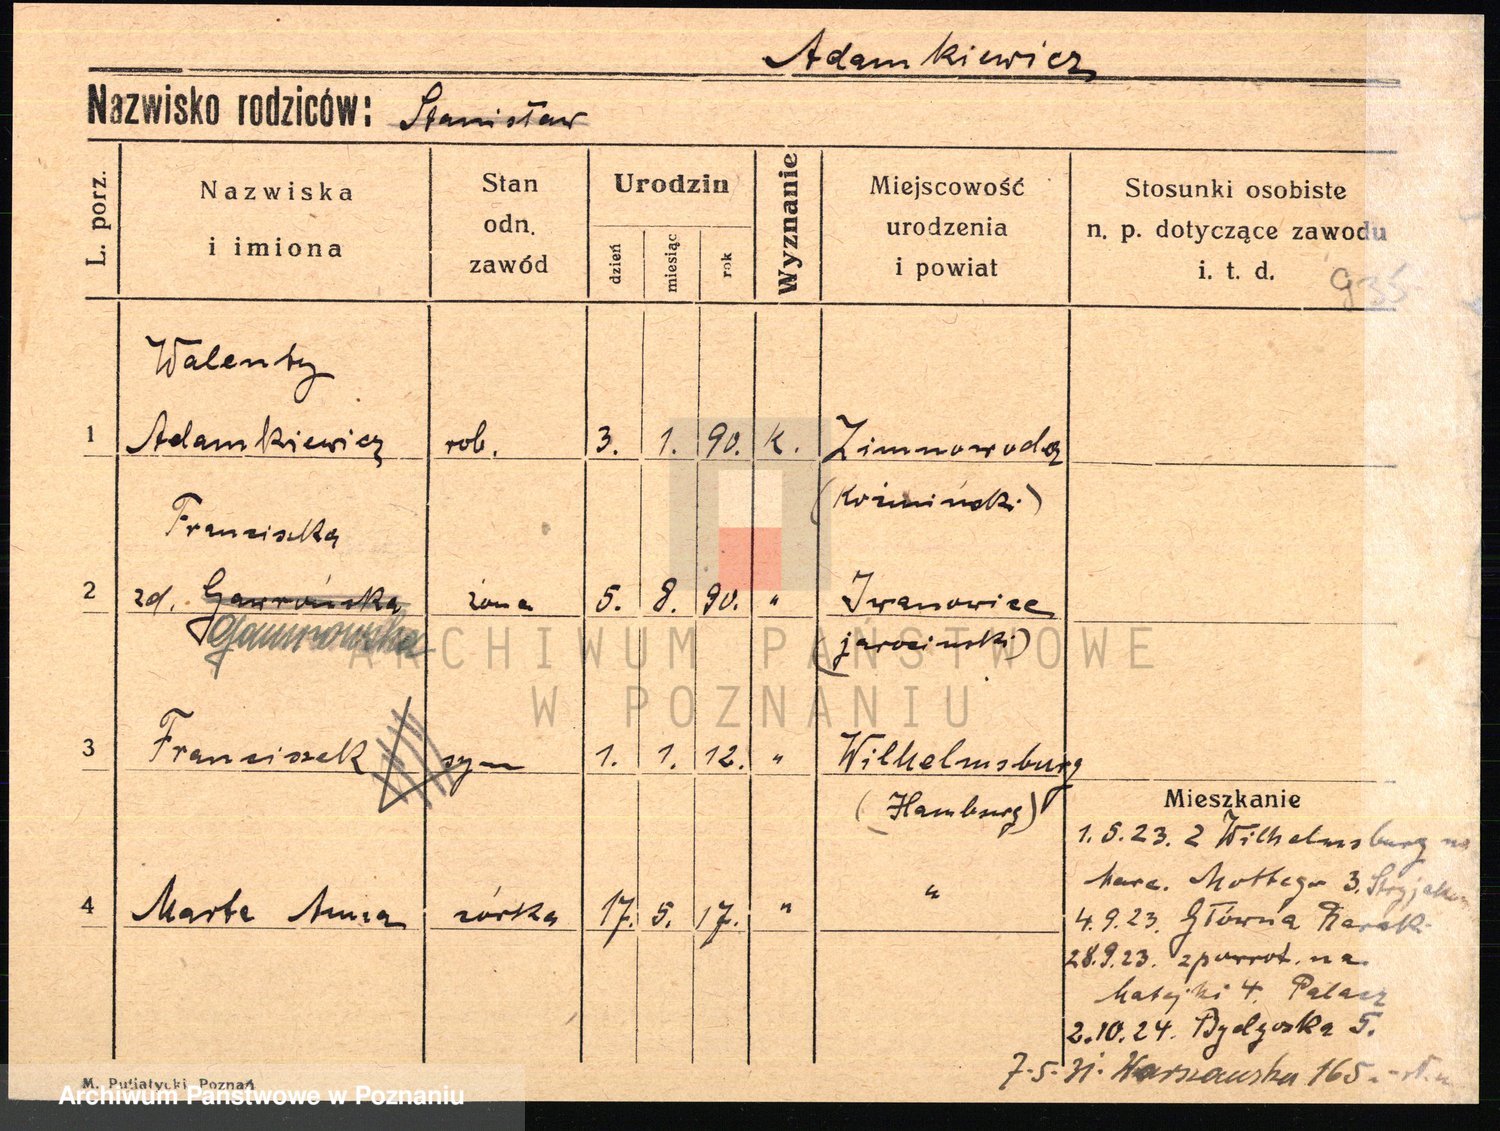 Adamkiewicz
Nazwisko rodziców: Stanisław
L. porz.
Nazwiska
i imiona
Stan
odn.
zawód
Urodzin
dzień
miesiąc
rok
Wyznanie
Miejscowość
urodzenia
i powiat
Stosunki osobiste
n. p. dotyczące zawodu
i. t. d.
Walenty
1 Adamkiewicz rob. 3. 1. 90. k. Zimnowoda
(Koźmiński)
Franciszka
2 zd. Gawrońska żona 5. 8. 90. " Iwanowice
(jarociński)
3 Franciszek syn 1. 1. 12. " Wilhelmsburg
(Hamburg)
Mieszkanie
1.5.23. z Wilhelmsburg na
Marc. Mottego 3.
4 Marta Anna córka 17. 5. 17. " "
4.9.23. Główna Barak.
28.9.23. zpowrot. na
Matejki 4. Palacz
2.10.24. Bydgoska 5.
7.5.31. Warszawska 165
M. Putiatycki, Poznań
ARCHIWUM PAŃSTWOWE
W POZNANIU
Archiwum Państwowe w Poznaniu